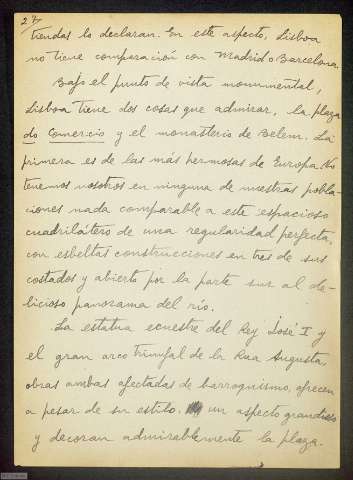 27
tiendas lo declaran. En este aspecto, Lisboa
no tiene comparación con Madrid o Barcelona.
Bajo el punto de vista monumental,
Lisboa tiene dos cosas que admirar, la plaza
do Comercio y el monasterio de Belem. La
primera es de las más hermosas de Europa. No
tenemos nosotros en ninguna de nuestras pobla-
ciones nada comparable a este espacioso
cuadrilátero de una regularidad perfecta,
con esbeltas construcciones en tres de sus
costados y abierto por la parte sur al de-
licioso panorama del río.
La estatua ecuestre del Rey José I y
el gran arco triunfal de la Rua Augusta,
obras ambas afectadas de barroquismo, ofrecen
a pesar de su estilo un aspecto grandioso
y decoran admirablemente la plaza.